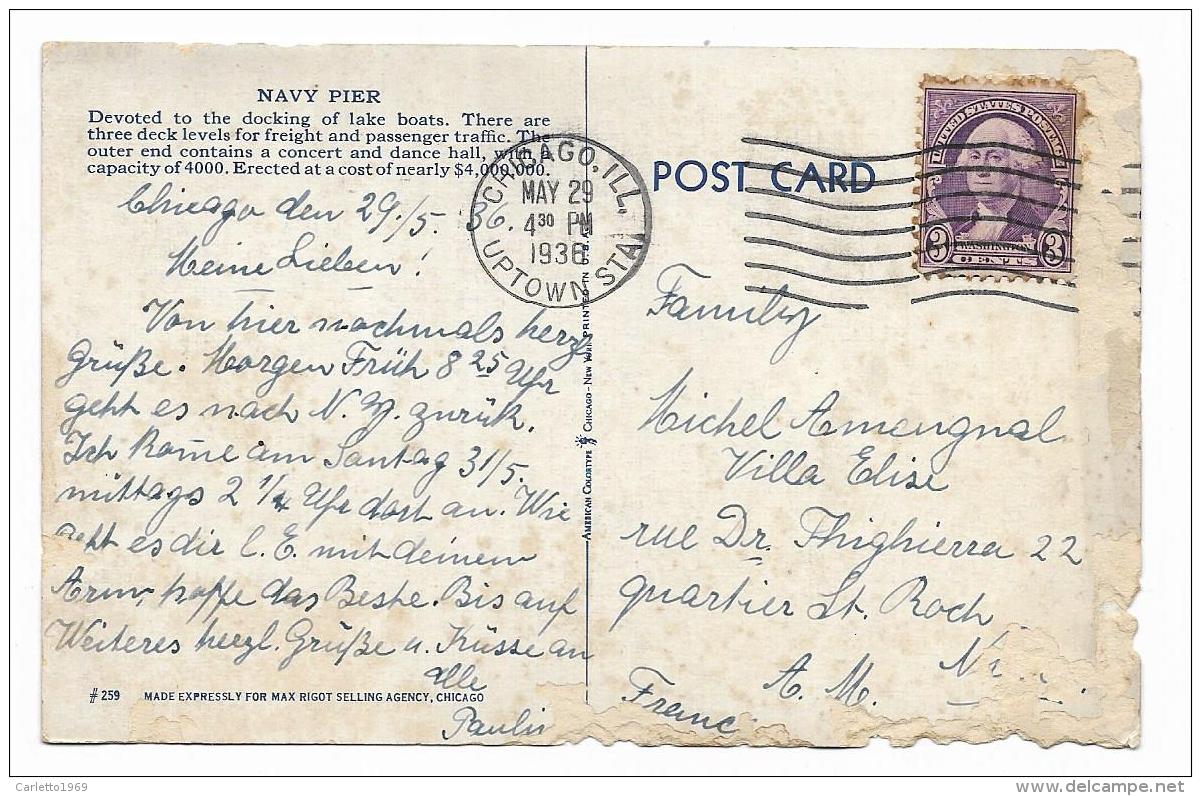 NAVY PIER
Devoted to the docking of lake boats. There are
three deck levels for freight and passenger traffic. The
outer end contains a concert and dance hall, with a
capacity of 4000. Erected at a cost of nearly $4,000,000.
Chicago den 29./5. 36.
Meine Lieben!
Von hier nochmals herzl
Grüße. Morgen Früh 8 25 Uhr
geht es nach N.Y. zurük.
Ich kome am Sontag 31/5.
mittags 2 1/4 Uhr dort an. Wie
geht es dir l. E. mit deinem
Arm, hoffe das Beste. Bis auf
Weiteres herzl. Grüße u. Küsse an
Alle
# 259 MADE EXPRESSLY FOR MAX RIGOT SELLING AGENCY, CHICAGO
AMERICAN COLORTYPE CHICAGO - NEW YORK PRINTED IN U.S.A.
CHICAGO, ILL.
MAY 29
4 30 PM
1936
UPTOWN STA.
POST CARD
UNITED STATES POSTAGE
3 WASHINGTON 3
Family
Michel Amengual
Villa Elise
rue Dr. Thighierra 22
quartier St. Roch
A. M.
Franc
Carletto1969
delcampe.net